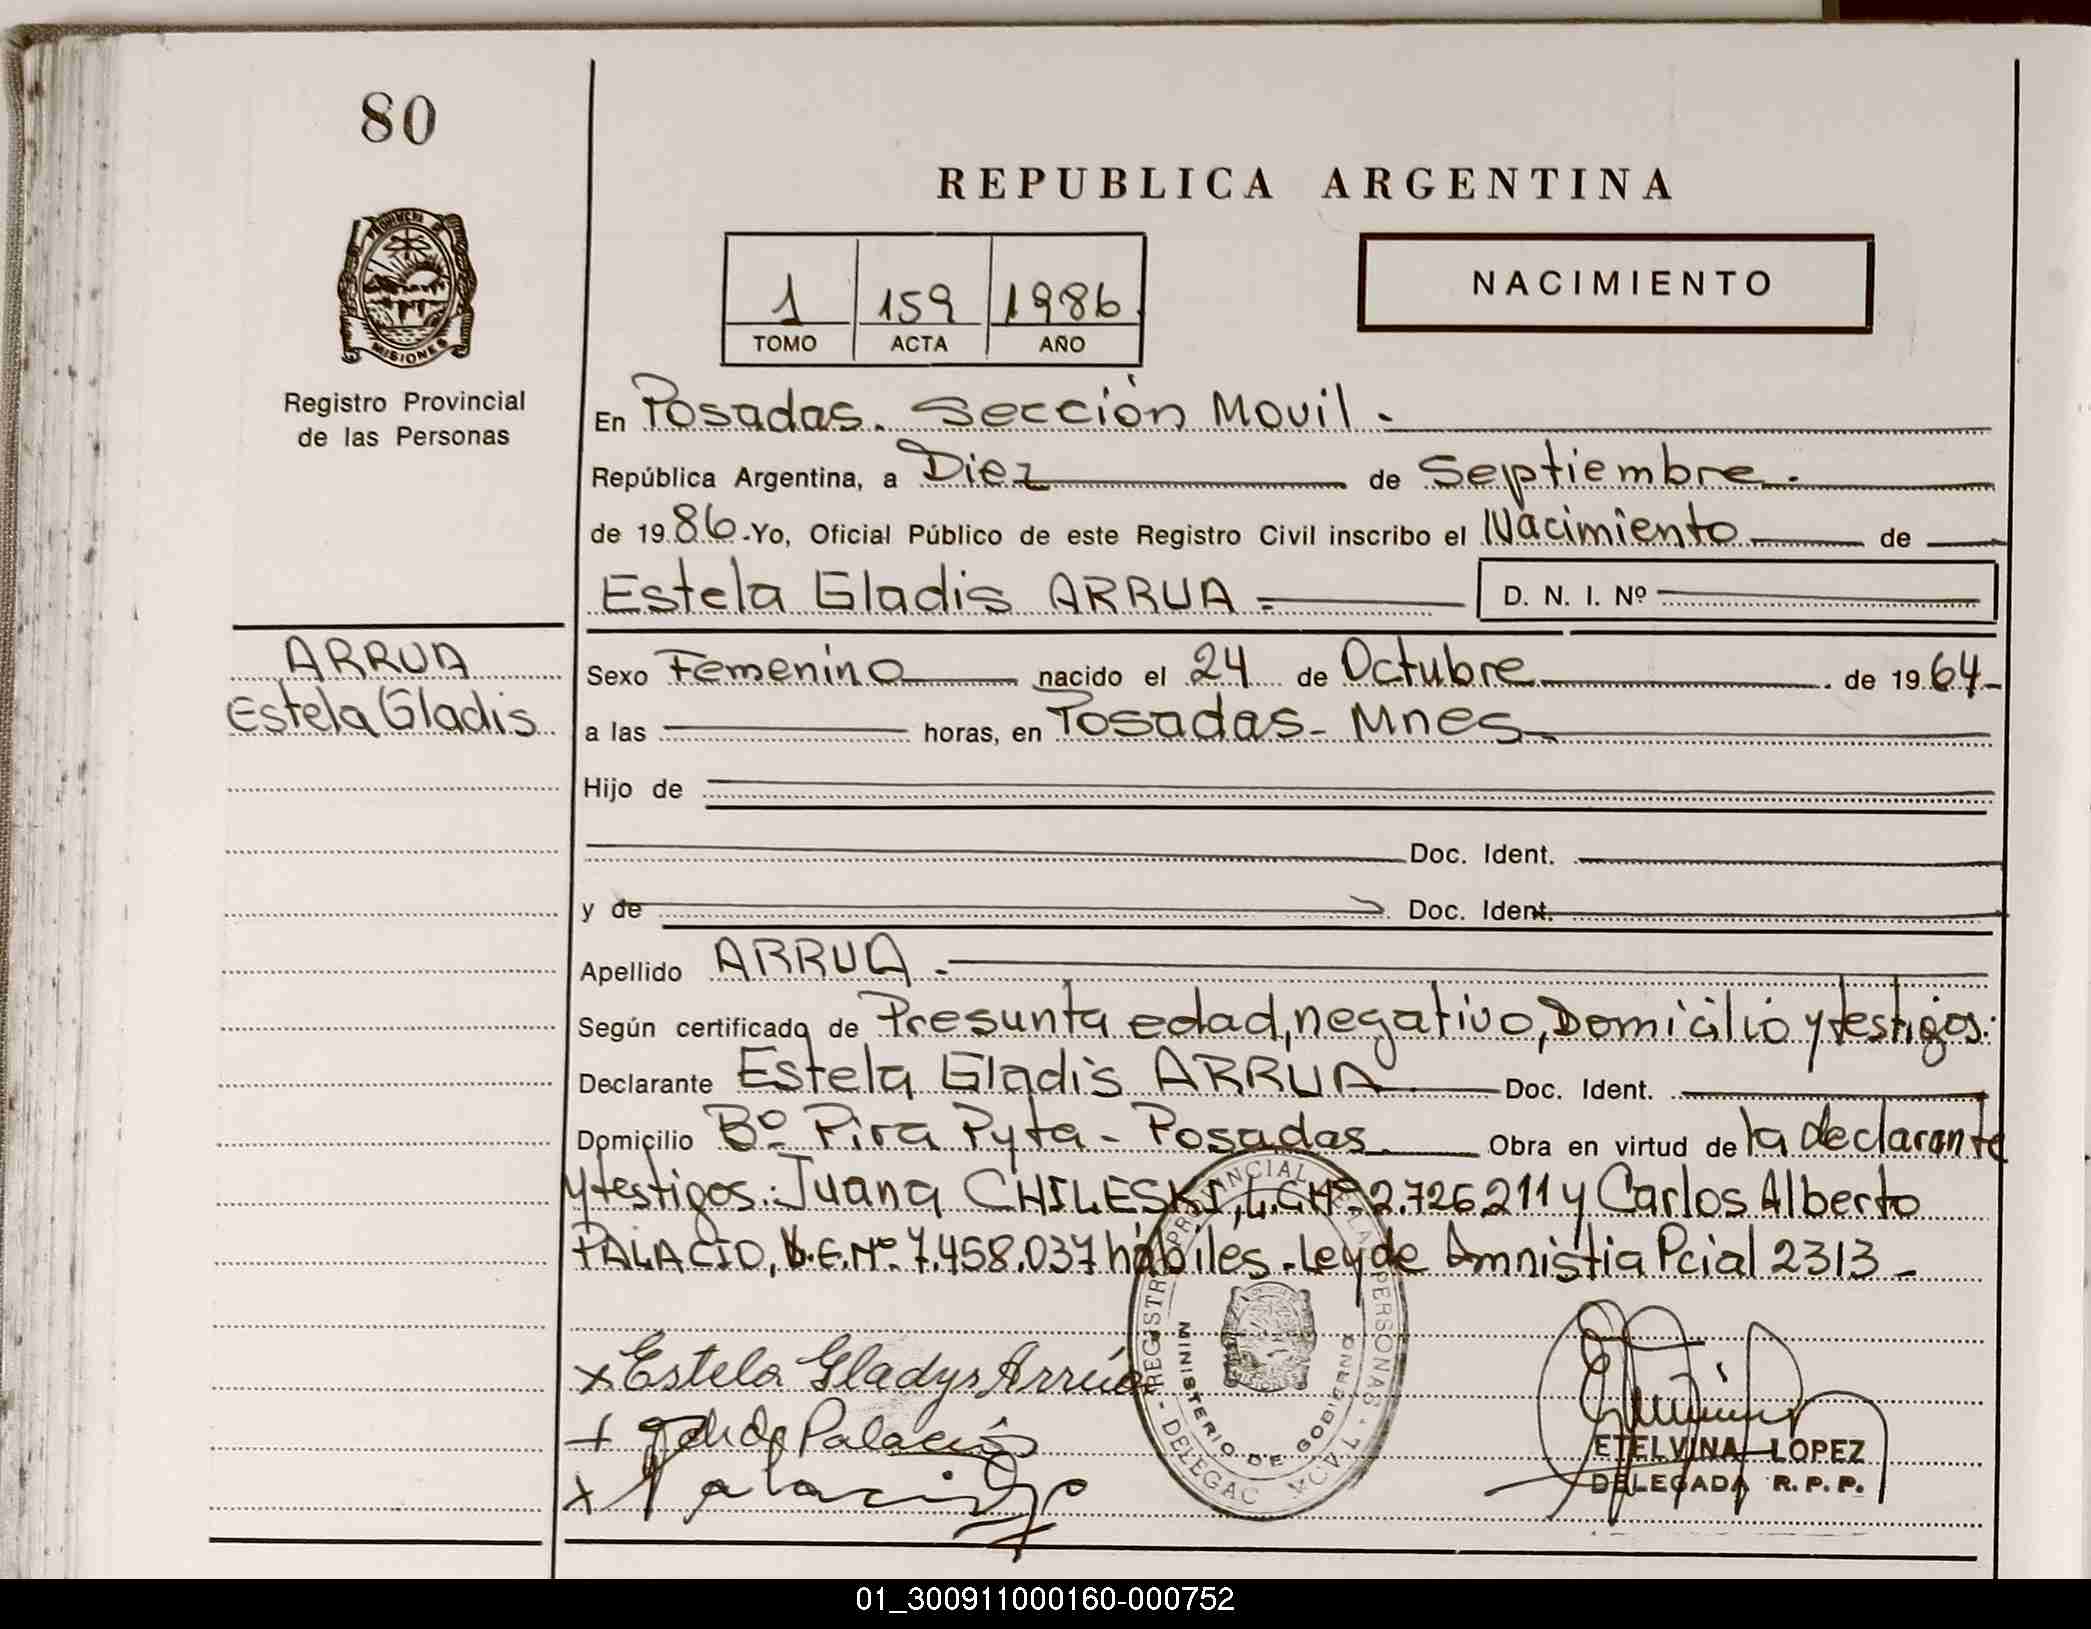 80
REPUBLICA ARGENTINA
PROVINCIA
MISIONES
Registro Provincial
de las Personas
1 159 1986
TOMO ACTA AÑO
NACIMIENTO
En Posadas. Sección Movil.
República Argentina, a Diez de Septiembre.
de 1986.-Yo, Oficial Público de este Registro Civil inscribo el Nacimiento de
Estela Gladis ARRUA D. N. I. Nº
ARRUA
Estela Gladis
Sexo Femenino nacido el 24 de Octubre de 1964-
a las horas, en Posadas- Mnes
Hijo de
Doc. Ident.
y de Doc. Ident.
Apellido ARRUA.
Según certificado de Presunta edad, negativo, Domicilio y testigos:
Declarante Estela Gladis ARRUA Doc. Ident.
Domicilio Bº Pira Pyta - Posadas Obra en virtud de la declarante
y testigos: Juana CHILESKI, L.C.Nº 2.726.211 y Carlos Alberto
PALACIO, D.E.Nº 7.458.037 hábiles.-Ley de Amnistia Pcial 2313-
x Estela Gladys Arrúa
+ Palacios
x
REGISTRO PROVINCIAL DE LAS PERSONAS
MINISTERIO DE GOBIERNO
ETELVINA LOPEZ
DELEGADA R.P.P.
01_300911000160-000752